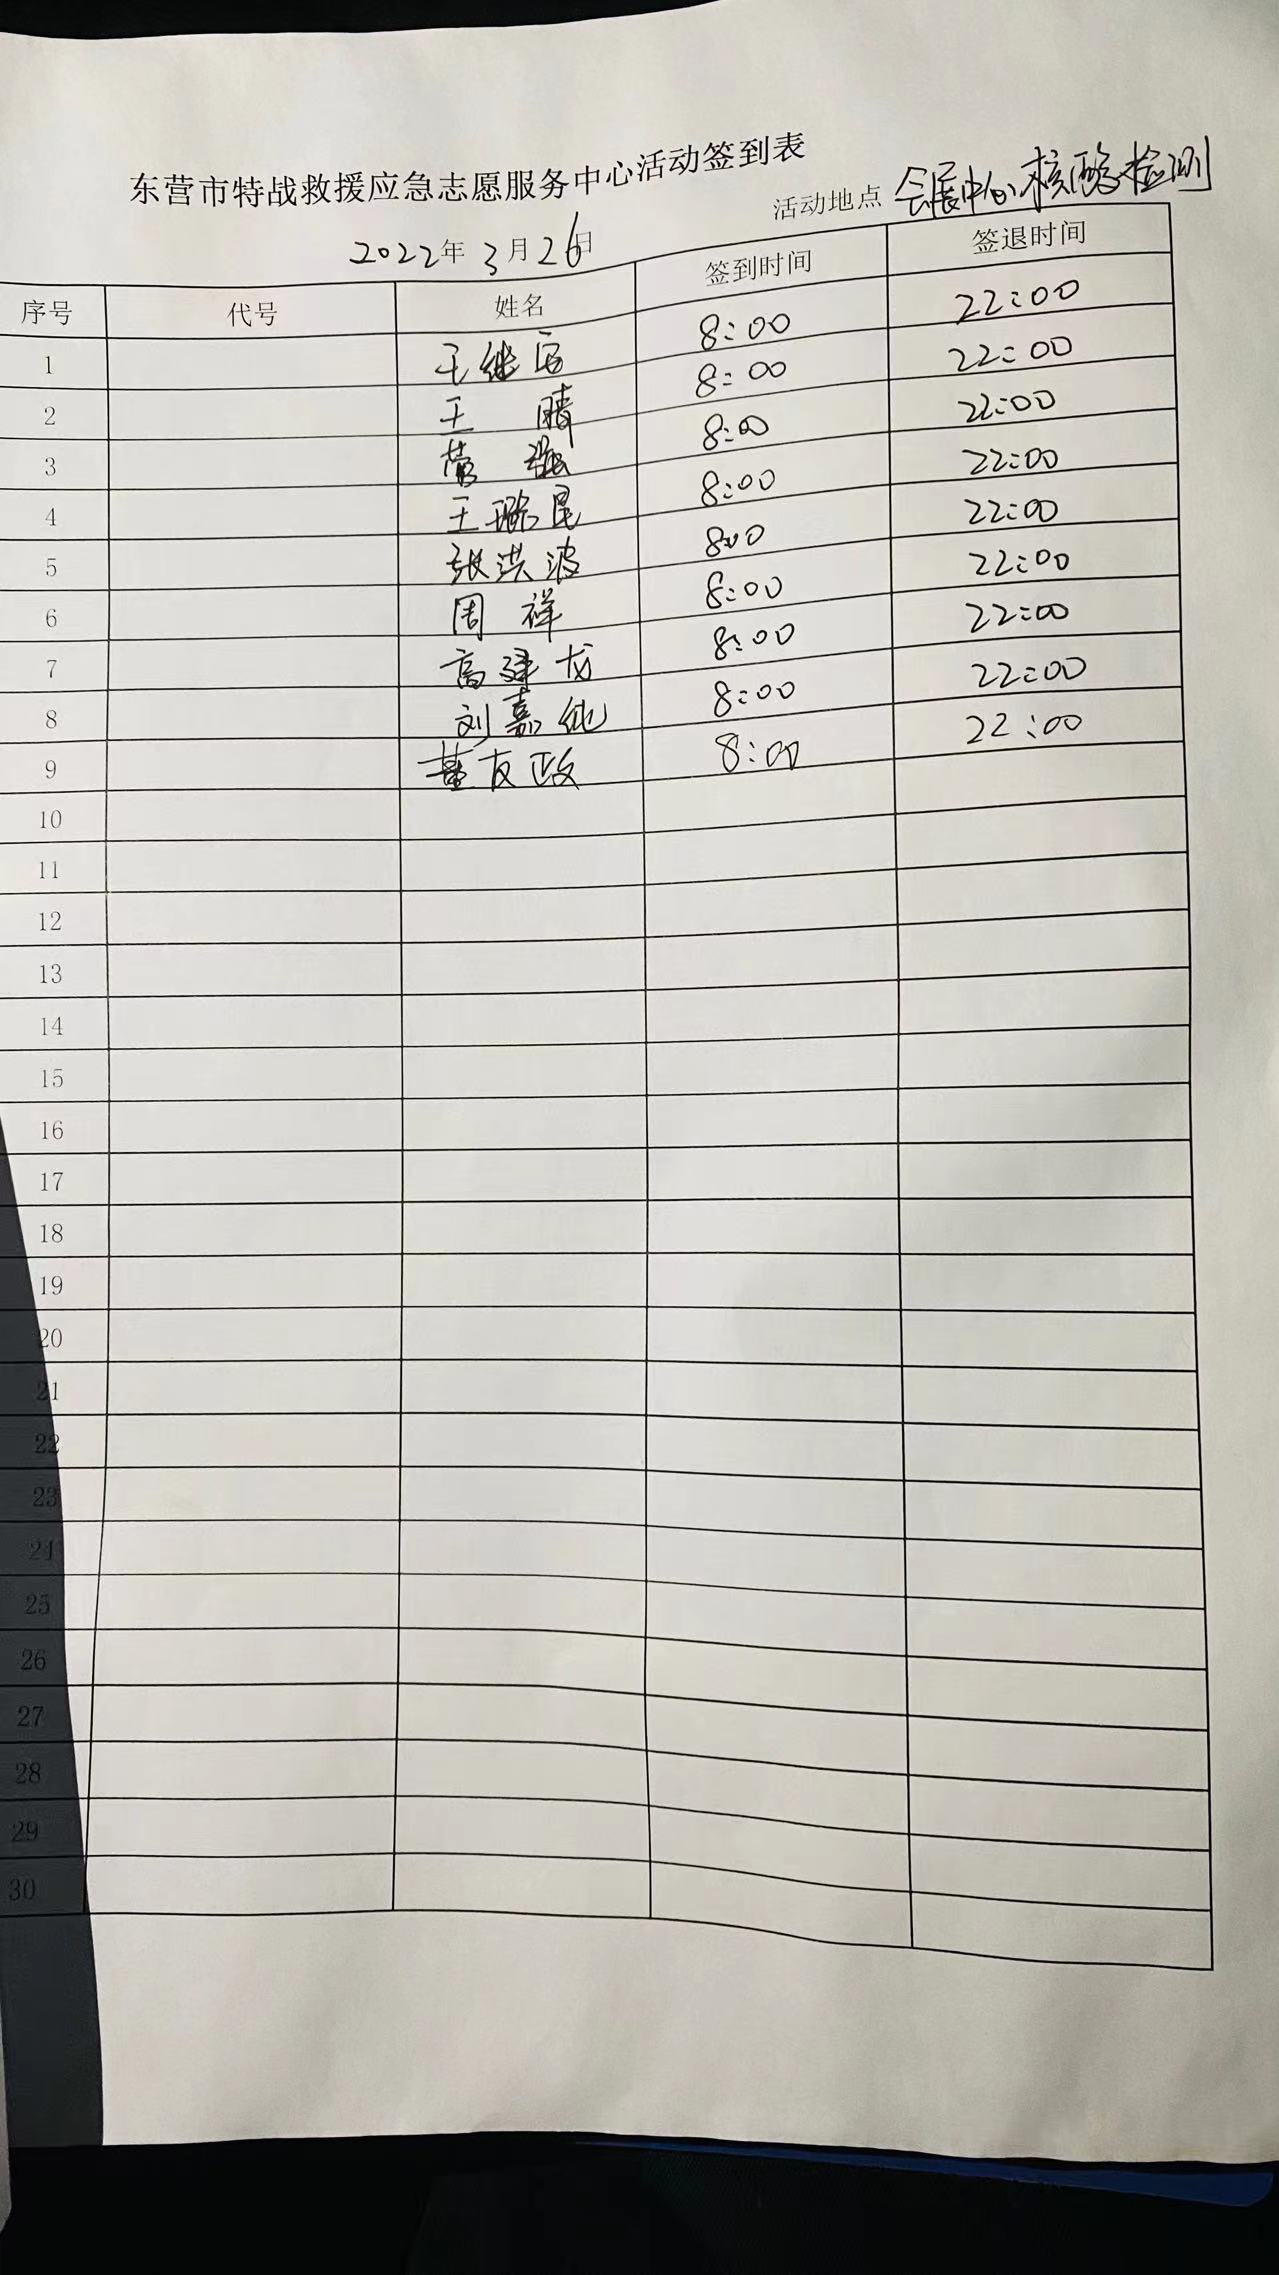 东营市特战救援应急志愿服务中心活动签到表
2022年3月26日 活动地点 会展中心核酸检测
序号 代号 姓名 签到时间 签退时间
1 王继 8:00 22:00
2 王晴 8:00 22:00
3 8:00 22:00
4 王璐昆 8:00 22:00
5 张洪波 8:00 22:00
6 周祥 8:00 22:00
7 高建龙 8:00 22:00
8 刘嘉 8:00 22:00
9 董友政 8:00 22:00
10
11
12
13
14
15
16
17
18
19
20
21
22
23
24
25
26
27
28
29
30